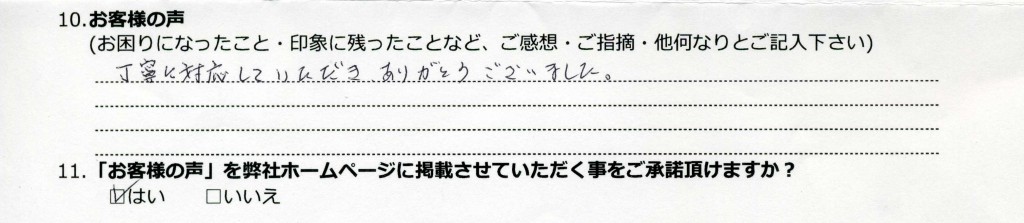 10.お客様の声
(お困りになったこと・印象に残ったことなど、ご感想・ご指摘・他何なりとご記入下さい)
丁寧に対応していただき、ありがとうございました。
11.「お客様の声」を弊社ホームページに掲載させていただく事をご承諾頂けますか？
☑はい □いいえ